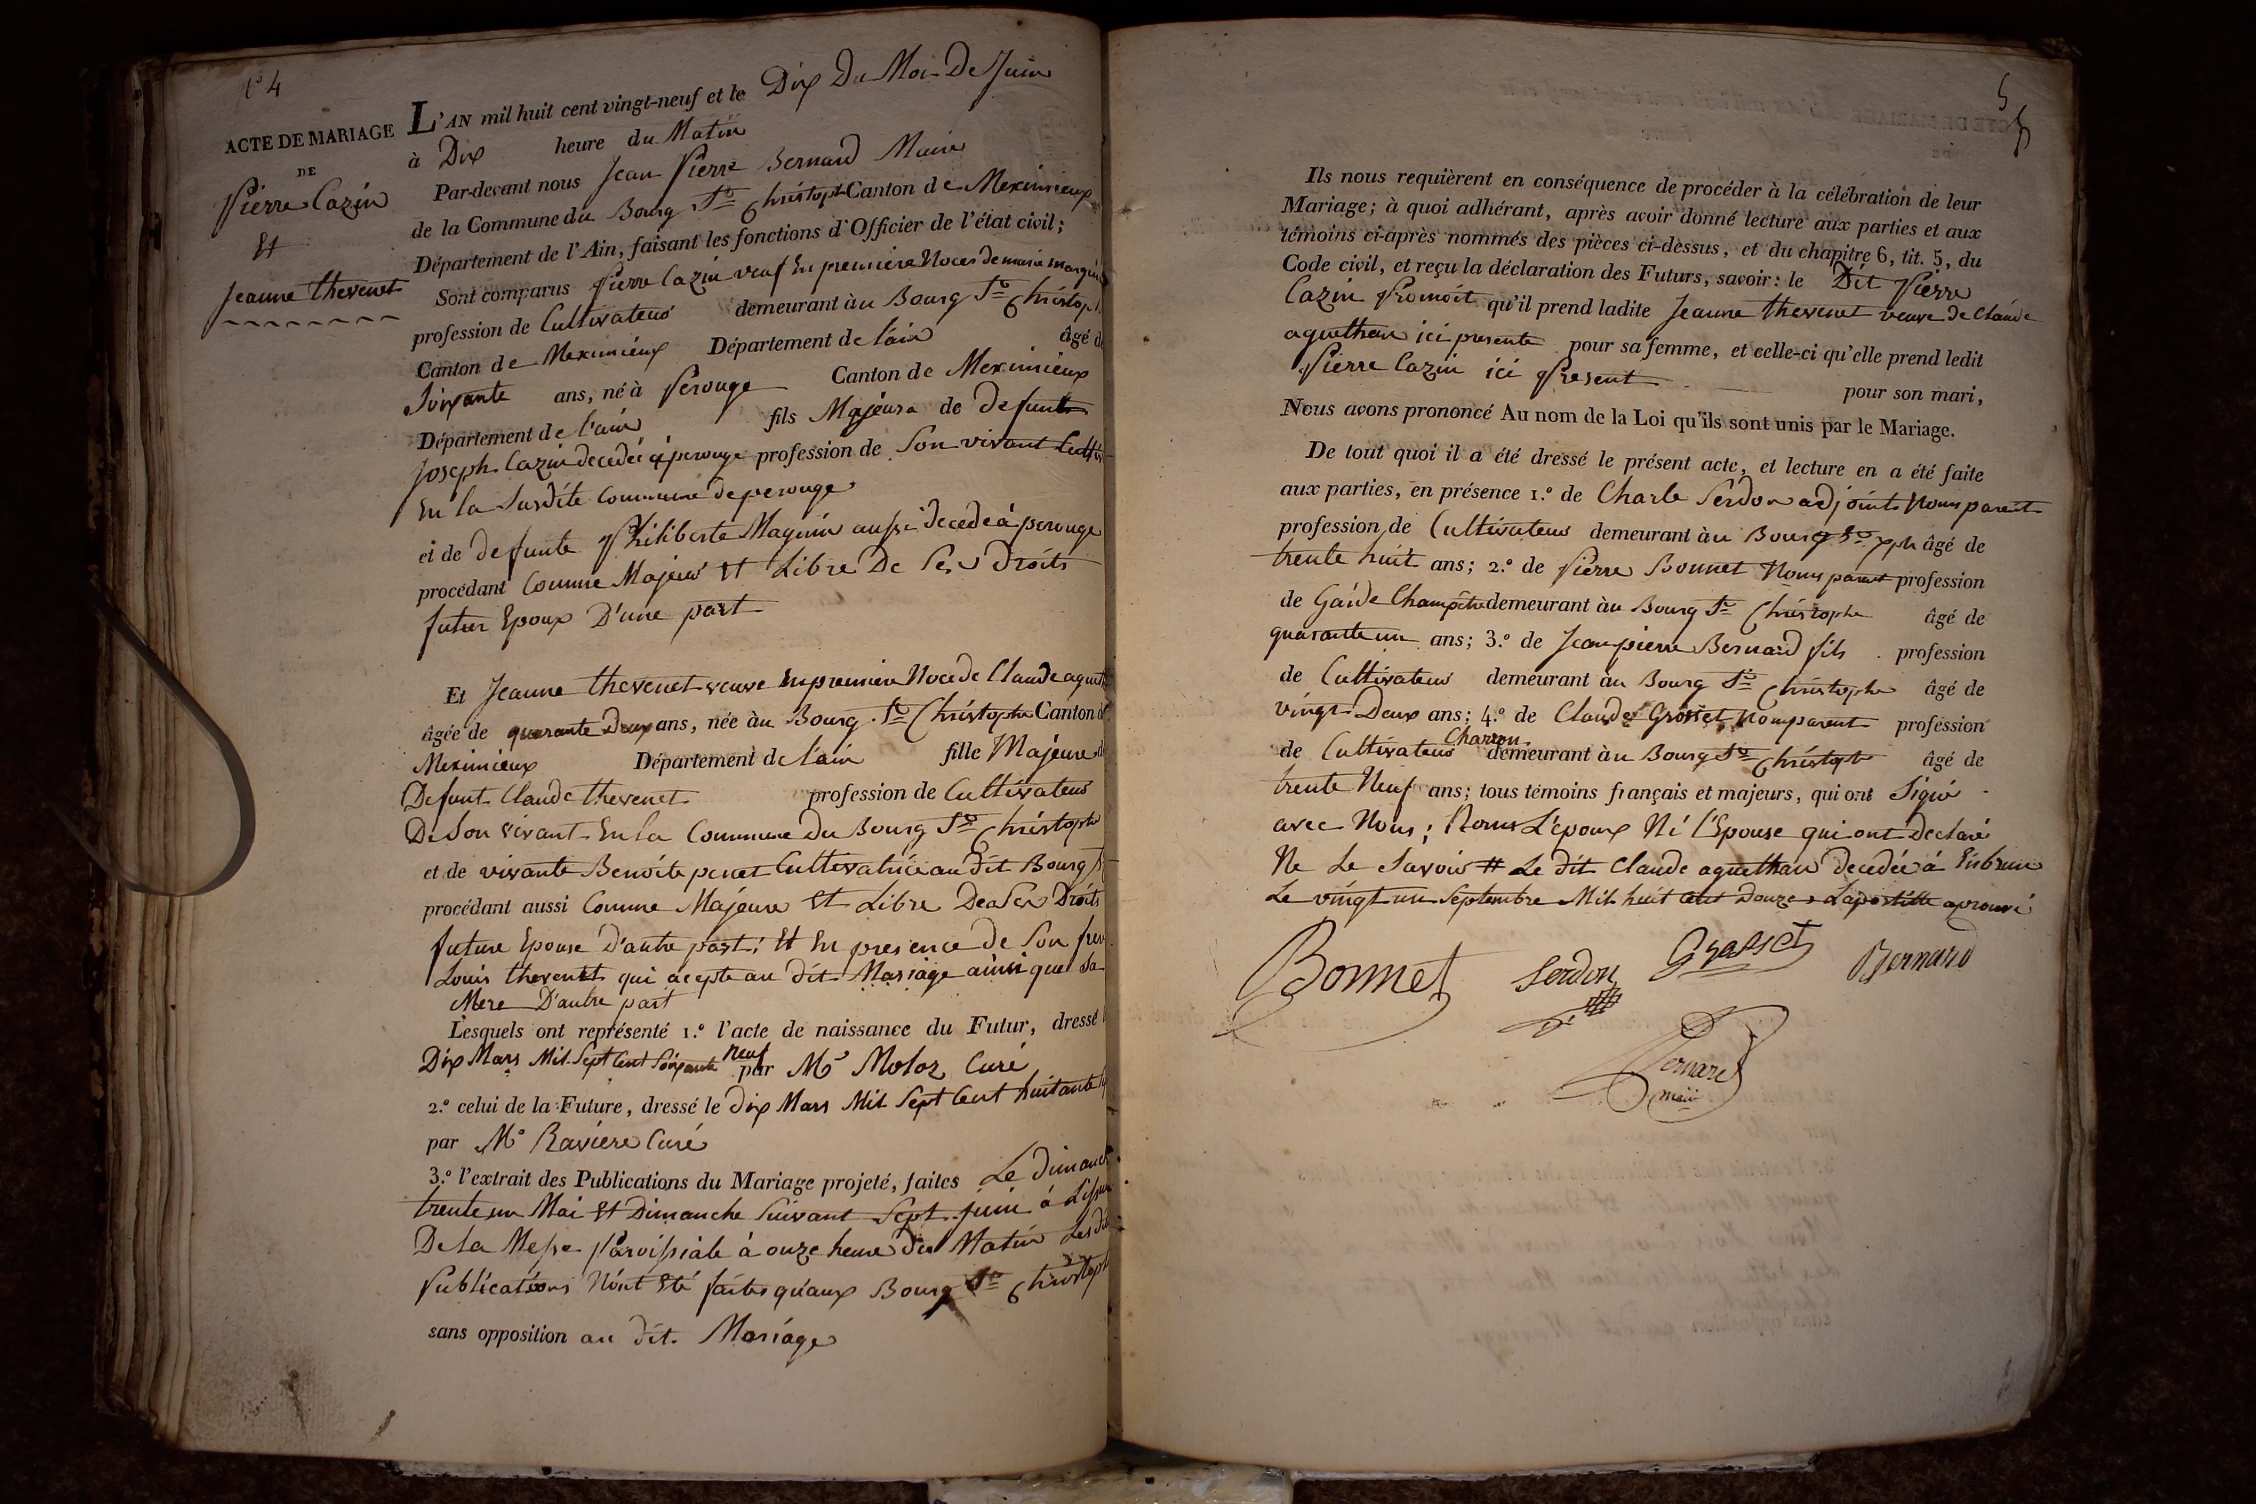 N° 4
ACTE DE MARIAGE
DE
Pierre Cazin
Et
Jeanne thevenet
L'AN mil huit cent vingt-neuf et le Dix Du Moi De Juin
à Dix heure du Matin
Par-devant nous Jean Pierre Bernard Maire
de la Commune du Bourg St Christoph Canton de Meximieux
Département de l'Ain, faisant les fonctions d'Officier de l'état civil;
Sont comparus Pierre Cazin veuf En premiere Noces de marie
profession de Cultivateur demeurant àu Bourg St Christoph
Canton de Meximieux Département de l'ain âgé de
Soixante ans, né à Perouge Canton de Meximieux
Département de l'ain fils Majeur de defunt
Joseph Cazin decedéé à perouge profession de Son vivant Cultiv
En la Susdite Commune de perouge
et de defunte Philiberte Magnin aussi decedé à perouge
procédant Comme Majeur Et Libre De Ses Droits
futur Epoux D'une part
Et Jeanne thevenet veuve En premiere Noce de Claude aguet
âgée de quarante Deux ans, née àu Bourg St Christophe Canton de
Meximieux Département de l'ain fille Majeure de
Defunt Claude thevenet profession de Cultivateur
De Son vivant En la Commune Du Bourg St Christophe
et de vivante Benoite penet Cultivatrice au dit Bourg St
procédant aussi Comme Majeure Et Libre De Ses Droits
future Epouse D'autre part; Et En presence de Son frere
Louis thevenet qui acepte au dit Mariage ainsi que Sa
Mere D'autre part
Lesquels ont représenté 1.° l'acte de naissance du Futur, dressé
Dix Mars Mil Sept Cent Soixante neuf par Mr Moloz Curé
2.° celui de la Future, dressé le dix Mars Mil Sept Cent huitante
par Mr Raviere Curé
3.° l'extrait des Publications du Mariage projeté, faites Le Dimanche
trente un Mai Et Dimanche Suivant Sept juin à L'issue
De La Messe Paroissiale à onze heure Du Matin Les dit
Publications N'ont Eté faites qu'aux Bourg St Christoph
sans opposition au dit Mariage
5
Ils nous requièrent en conséquence de procéder à la célébration de leur
Mariage; à quoi adhérant, après avoir donné lecture aux parties et aux
témoins ci-après nommés des pièces ci-dessus, et du chapitre 6, tit. 5, du
Code civil, et reçu la déclaration des Futurs, savoir: le Dit Pierre
Cazin Promoit qu'il prend ladite Jeanne thevenet veuve de Claude
aguethan ici presente pour sa femme, et celle-ci qu'elle prend ledit
Pierre Cazin ici Present pour son mari,
Nous avons prononcé Au nom de la Loi qu'ils sont unis par le Mariage.
De tout quoi il a été dressé le présent acte, et lecture en a été faite
aux parties, en présence 1.° de Charle Serdon adjoint Nom parent
profession de Cultivateur demeurant àu Bourg St xph âgé de
trente huit ans; 2.° de Pierre Bonnet Nom parent profession
de Garde Champêtre demeurant àu Bourg St Christophe âgé de
quarante un ans; 3.° de Jean pierre Bernard fils profession
de Cultivateur demeurant àu Bourg St Christophe âgé de
vingt Deux ans; 4.° de Claude Grosset Nom parent profession
de Cultivateur Charron demeurant àu Bourg St Christophe âgé de
trente Neuf ans; tous témoins français et majeurs, qui ont Signé
avec Nous; Nom L'époux Ni l'Epouse qui ont Declaré
Ne Le Savoir # Le dit Claude aguethan decedée à Enbrun
Le vingt un Septembre Mil huit Cent Douze Lapostille aprouvé
Bonnet Serdon Grosset Bernard
Bernard
maire